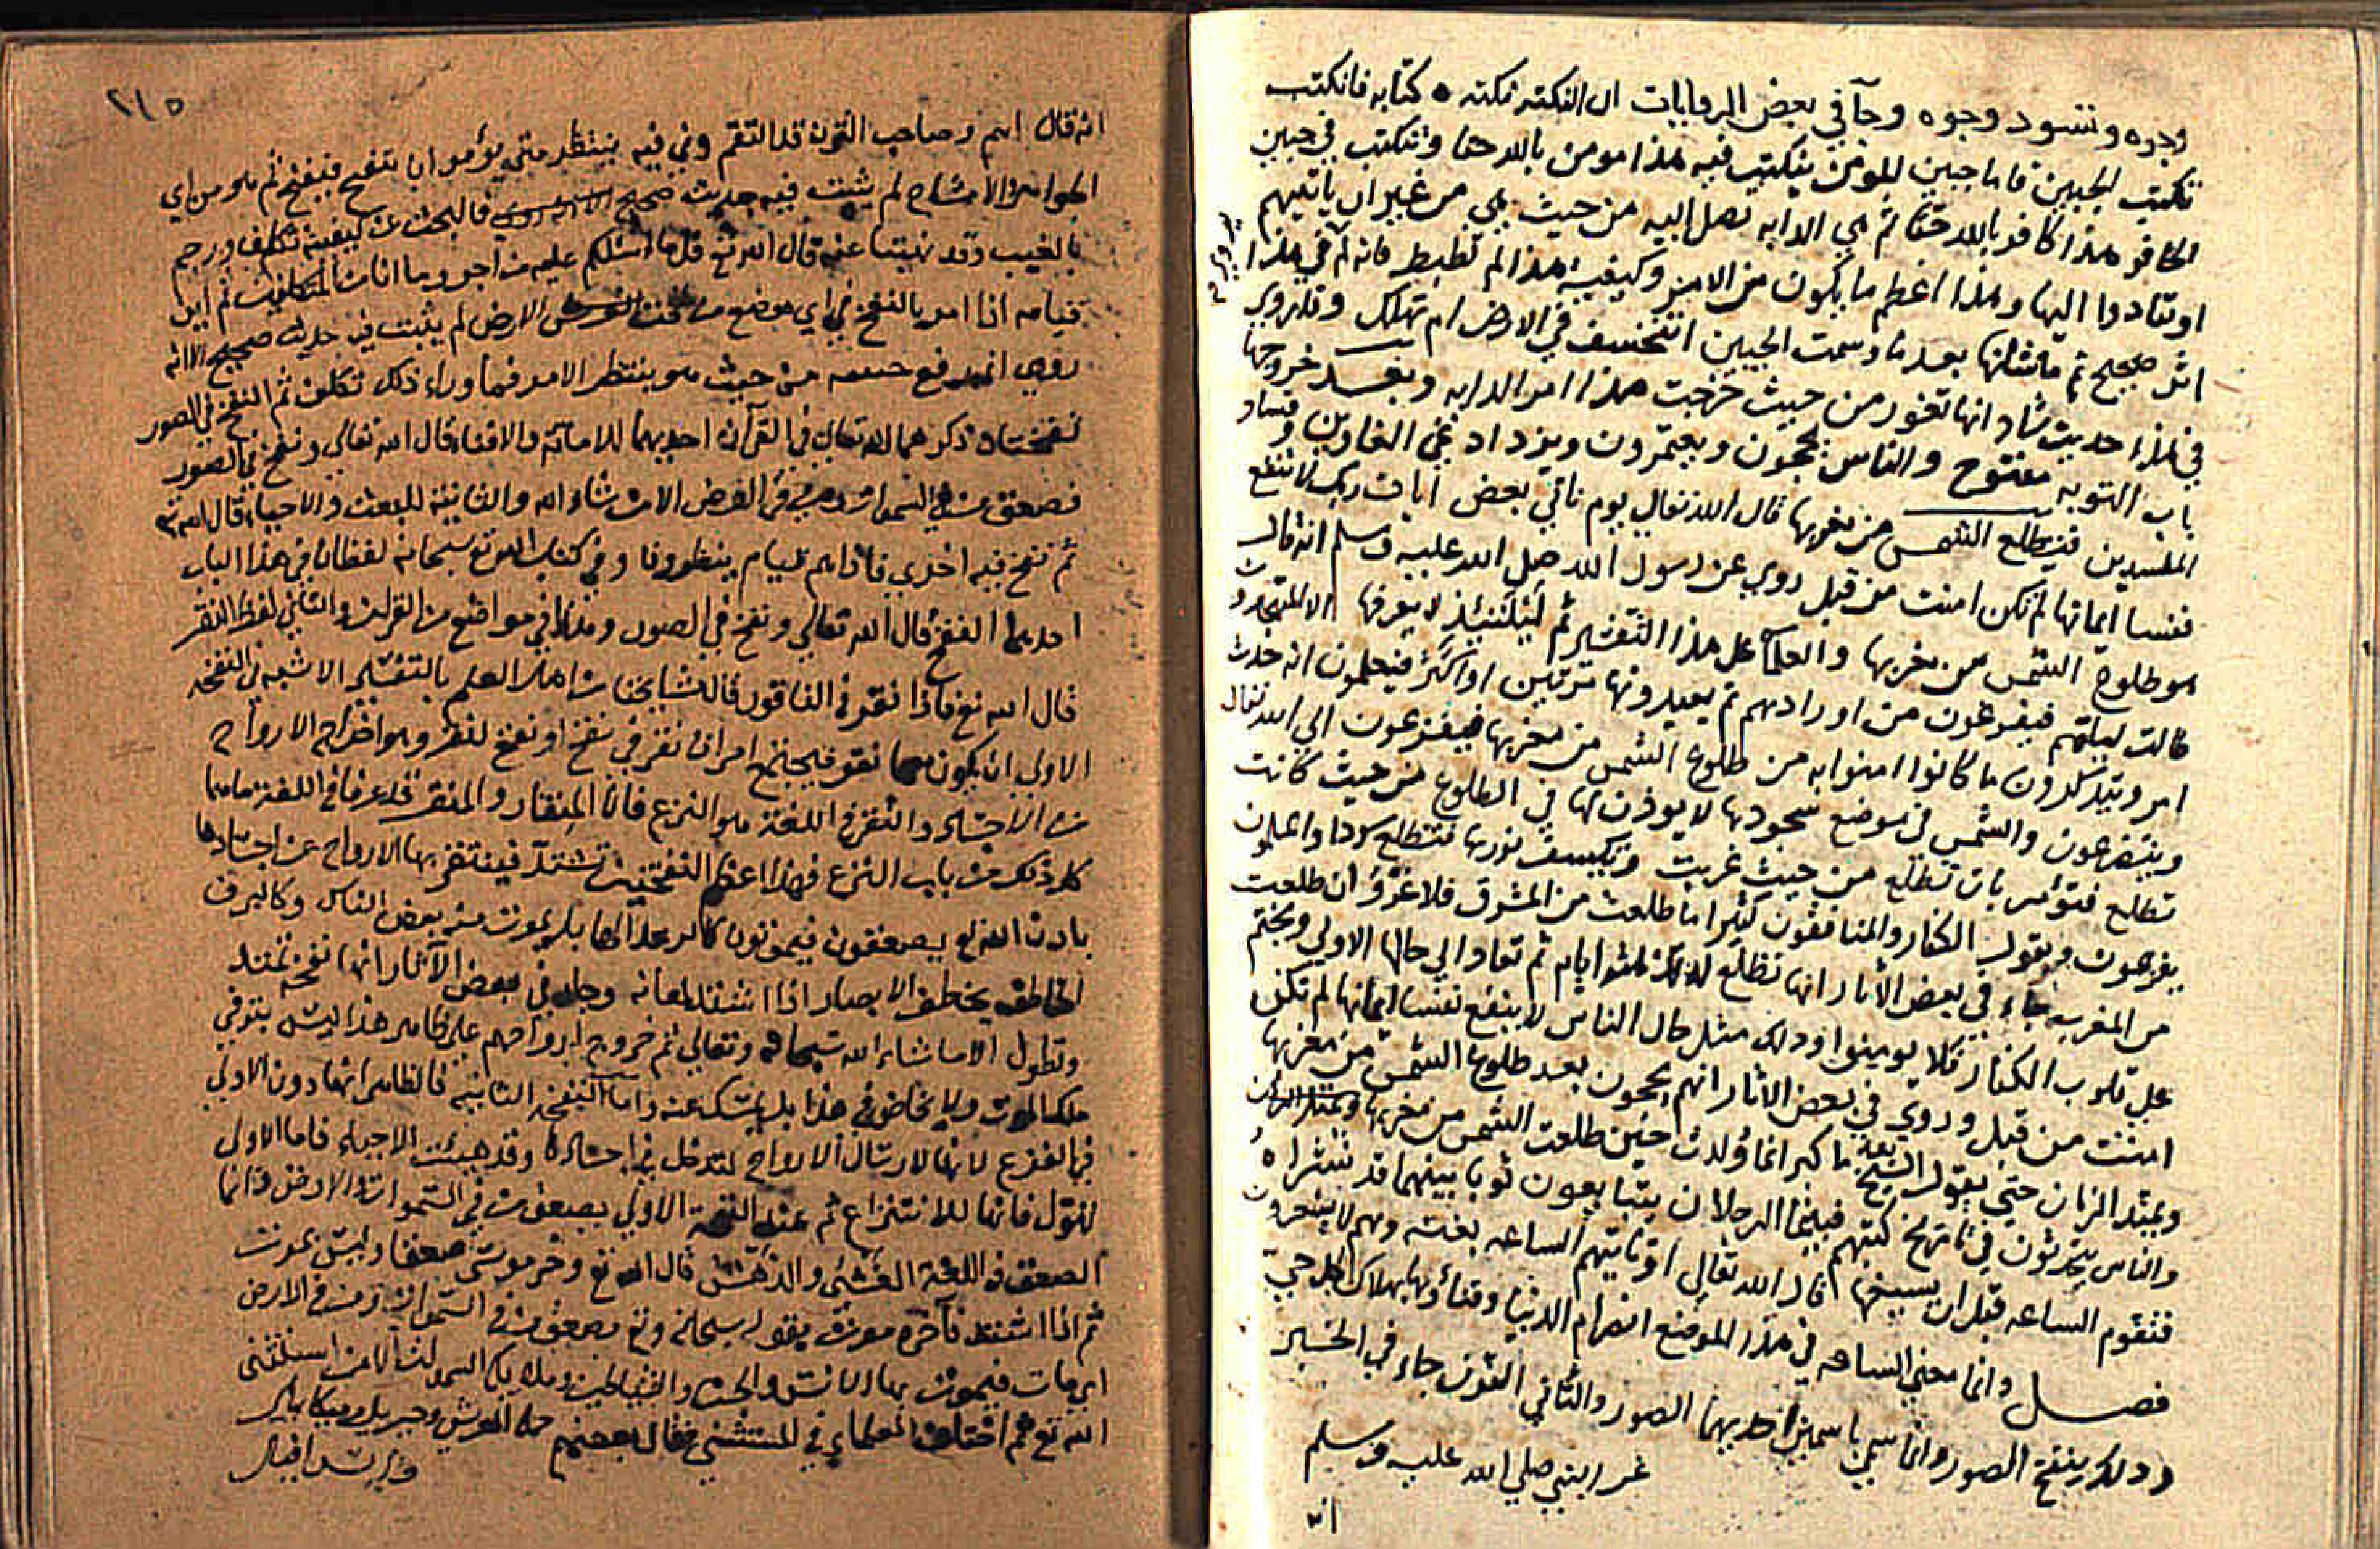 وجوه وتسود وجوه وجآ في بعض الروايات ان النكته نكته ه كتابه فانكتب
تكتب الجبين فاما جبين المومن ينكتب فيه هذا مومن بالله حقا وتنكتب في جبين
الكافر هذا كافر بالله حقا ثم هي الدابه تصل اليه من حيث هي من غير ان ياتيهم
او يتادوا اليها وهذا اعظم ما يكون من الامر وكيفية هذا لم تضبط فانه لم في هذا
اثر صحيح ثم ما شانها بعد ما وسمت الجبين اتنخسف في الارض ام تهلك وقد روي
في هذا حديث شاد انها تغور من حيث خرجت هذا امر الدابه وبعد خروجها
باب التوبه مفتوح والناس يحجون ويعتمرون ويزداد غي الغاوين وفساد
المفسدين فيتطلع الشمس من مغربها قال الله تعالي يوم ياتي بعض ايات ربك لا ينفع
نفسا ايمانها لم تكن امنت من قبل روي عن رسول الله صلي الله عليه وسلم انه قال
هو طلوع الشمس من مغربها والعلمآ علي هذا التفسير ثم ليلتئيذ لا يعرفها الا المتهجدون
طالت ليلتهم فيفرغون من اورادهم ثم يعيدونها مرتين او اكثر فيعلمون انه حدث
امر ويتذكرون ما كانوا امنوا به من طلوع الشمس من مغربها فيفزعون الي الله تعالي
ويتضرعون والشمس في موضع سجودها لا يوذن لها في الطلوع من حيث كانت
تطلع فتؤمر بان تطلع من حيث غربت وتكسف نورها فتطلع سودا واعلمون
يفزعون ويقول الكفار والمنافقون كثيرا ما طلعت من المشرق فلا غرو ان طلعت
من المغرب جاء في بعض الاثار انها تطلع كذلك ثلثه ايام ثم تعاد الي حالها الاولي ويختم
علي قلوب الكفار فلا يومنوا وذلك مثل حال الناس لا ينفع نفسا ايمانها لم تكن
امنت من قبل وروي في بعض الاثار انهم يحجون بعد طلوع الشمس من مغربها
ويمتد الزمان حتي يقول الشيخ بعد ما كبر انما ولدت حين طلعت الشمس من مغربها
والناس يتحدثون في تاريخ كتبهم فبينما الرجلان يتبايعون ثوبا بينهما قد نشراه
فتقوم الساعه قبل ان يسيخها قال الله تعالي او تاتيهم الساعه بغته وهم لا يشعرون
فصل وانما معني الساعه في هذا الموضع انصرام الدنيا وفناؤها بهلاك كل حي
وذلك بنفخ الصور وانما سمي باسمين احدهما الصور والثاني القرن جاء في الخبر
عن النبي صلي الله عليه وسلم
انه
٢١٥
انه قال وصاحب القرن قد التقم وفي فيه ينتظر متي يؤمر ان ينفخ فينفخ ثم هو من اي
الجواهر والاشباح لم يثبت فيه حديث صحيح فالبحث عن كيفيته تكلف ورجم
بالغيب وقد نهينا عنه قال الله تع قل ما اسئلكم عليه من اجر وما انا من المتكلفين ثم اين
قيامه اذا امر بالنفخ في اي موضع من الارض لم يثبت فيه حديث صحيح الا انه
روي من حيث هو ينتظر الامر فما وراء ذلك تكلف ثم النفخ في الصور
نفختان ذكرهما الله تعالي في القرآن احديهما للاماتة والافناء قال الله تعالي ونفخ في الصور
فصعق من في السموات ومن في الارض الا من شاء الله والثانية للبعث والاحياء قال الله تع
ثم نفخ فيه اخري فاذا هم قيام ينظرون وفي كتاب الله تع سبحانه لفظان في هذا الباب
احديهما النفخ قال الله تعالي ونفخ في الصور وهذا في مواضع من القرآن والثاني لفظ النقر
قال الله تع فاذا نقر في الناقور قال مشايخنا من اهل العلم بالتفسير الاشبه في النفخه
الاولي ان يكون معها نقر فيجتمع امران نقر في نفخ او نفخ لنقر وهو اخراج الارواح
من الاجساد والنقر في اللغة هو النزع فان المنقار والمنقر قد عرفا في اللغة ماهما
كل ذلك من باب النزع فهذا اعظم النفختين تشتد فينتقر بها الارواح عن اجسادها
باذن الله يصعقون فيموتون كالرعد الهايل يموت منه بعض الناس وكالبرق
الخاطف يخطف الابصار اذا اشتد لمعانه وجاء في بعض الآثار انها نفخة تمتد
وتطول الا ما شاء الله سبحانه وتعالي ثم خروج ارواحهم علي ظاهر هذا ليس بتوفي
ملك الموت ولا يخاض في هذا بل يمسك عنه واما النفخه الثانية فالظاهر انها دون الاولي
في الفزع لانها لارسال الارواح لتدخل في اجسادها وقد هيئت الاحياء فاما الاولي
فانها للانتزاع ثم عند النفخة الاولي يصعق من في السموات والارض وانما
الصعق في اللغة الغشي والدهش قال الله تع وخر موسي صعقا وليس بموت
ثم اذا اشتد فآخره موت يقول سبحانه وتع فصعق من في السموات ومن في الارض
اي مات فيموت بها الانس والجن والشياطين وملايكة السموات الا من استثني
الله تع ثم اختلف العلماء في المستثني فقال بعضهم حملة العرش وجبريل وميكائيل
واسرافيل